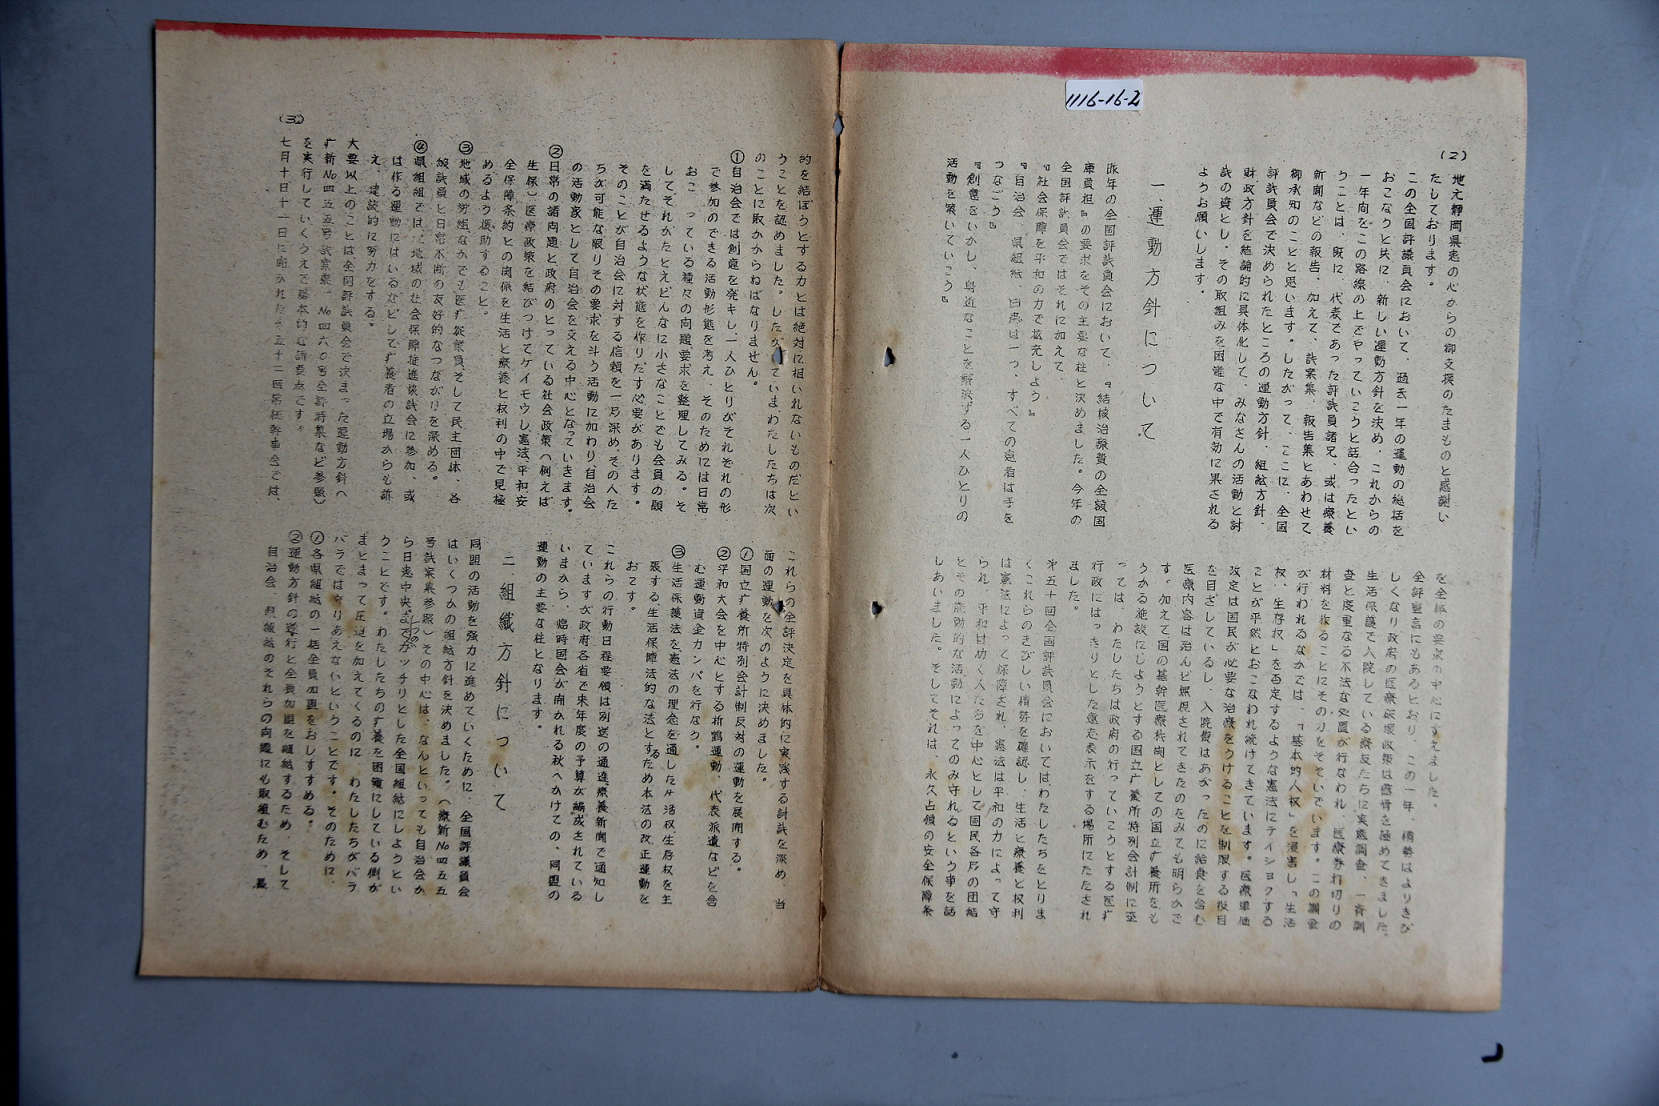 1116-16-2
(2)
地元静岡県患の心からの御支援のたまものと感謝い
たしております。
この全国評議員会において、過去一年の運動の総括を
おこなうと共に、新しい運動方針を決め、これからの
一年向をこの路線の上でやっていこうと話合ったとい
うことは、既に、代表であった評議員諸兄、或は療養
新聞などの報告、加えて、議案集、報告集とあわせて
御承知のことと思います。したがって、ここに、全国
評議員会で決められたところの運動方針、組織方針、
財政方針を結論的に具体化して、みなさんの活動と討
議の資とし、その取組みを困難な中で有効に果される
ようお願いします。
一、運動方針について
昨年の全国評議員会において、『結核治療費の全額国
庫負担』の要求をその主要な柱と決めました。今年の
全国評議員会ではそれに加えて、
『社会保障を平和の力で拡充しよう』
『自治会、県組織、日患は一つ、すべての患者は手を
つなごう』
『創意をいかし、身近なことを解決する一人ひとりの
活動を築いていこう』
を全体の要求の中心にすえました。
全評宣言にもあるとおり、この一年、情勢はよりきび
しくなり政府の医療破壊政策は露骨を極めてきました。
生活保護で入院している療友たちに実態調査、一斉調
査と度重なる不法な処置が行なわれ、医療券打切りの
材料を作ることにその力をそそいでいます。この調査
が行われるなかでは、『基本的人权』を侵害し『生活
权、生存权』を否定するような憲法にテイショクする
ことが平然とおこなわれ続けてきています。医療単価
改定は国民が必要な治療をうけることを制限する役目
を目ざしているし、入院費はあがったのに給食を含む
医療内容は殆んど無視されてきたのをみても明らかで
す。加えて国の基幹医療機関としての国立療養所をも
うかる施設にしようとする国立療養所特別会計制に至
っては、わたしたちは政府の行っていこうとする医療
行政にはっきりとした意志表示をする場所にたたされ
ました。
第五十回全国評議員会においてはわたしたちをとりま
くこれらのきびしい情勢を確認し、生活と療養と权利
は憲法によって保障され、憲法は平和の力によって守
られ、平和は働く人たちを中心として国民各層の団結
とその能動的な活動によってのみ守れるという事を話
しあいました。そしてそれは、永久占領の安全保障条
(3)
的を結ぼうとする力とは絶対に相いれないものだとい
うことを認めました。したがっていまわたしたちは次
のことに取かからねばなりません。
①自治会では創意を発キし、一人ひとりがそれぞれの形
で参加のできる活動形態を考え、そのためには日常
おこっている種々の问題要求を整理してみる。そ
してそれがたとえどんなに小さなことでも会員の願
を満たせるような状態を作りだす必要があります。
そのことが自治会に対する信頼を一层深め、その人た
ちが可能な限りその要求を斗う活動に加わり、自治会
の活動家として自治会を支える中心となっていきます。
②日常の諸问題と政府のとっている社会政策(例えば
生保)医療政策を結びつけてケイモウし憲法、平和安
全保障条約との関係を生活と療養と权利の中で見極
めるよう援助すること。
③地域の労組なかでも医療従業員、そして民主団体、各
級議員と日常不断の友好的なつながりを深める。
④県組織では、地域の社会保障推進協議会に参加、或
は作る運動にはいるなどして療養者の立場からも訴
え、建設的に努力をする。
大要以上のことは全国評議員会で決まった運動方針(
療新No四五五号議案集、No四六〇号全評特集など参照)
を実行していくうえで基本的な諸要点です。
七月十日十一日に開かれた第五十二回常任幹事会では、
これらの全評決定を具体的に実践する討議を深め、当
面の運動を次のように決めました。
①国立療養所特別会計制反対の運動を展開する。
②平和大会を中心とする祈鶴運動、代表派遣などを含
む運動資金カンパを行なう。
③生活保護法を憲法の理念を通した生活权、生存权を主
張する生活保障法的な法とするため本法の改正運動を
おこす。
これらの行動日程要領は別送の通達、療養新聞で通知し
ていますが政府各省で来年度の予算が編成されている
いまから、臨時国会が開かれる秋へかけての、同盟の
運動の主要な柱となります。
二、組織方針について
同盟の活動を強力に進めていくために、全国評議員会
はいくつかの組織方針を決めました。(療新No四五五
号議案集参照)その中心は、なんといっても自治会か
ら日患中央までガッチリとした全国組織にしようとい
うことです。わたしたちの療養を困難にしている側が
まとまって圧迫を加えてくるのに、わたしたちがバラ
バラでは守りあえないということです。そのために、
①各県組織の一括全員加盟をおしすすめる。
②運動方針の遂行と全員加盟を組織するため、そして
自治会、県組織のそれらの问題にも取組むため、最